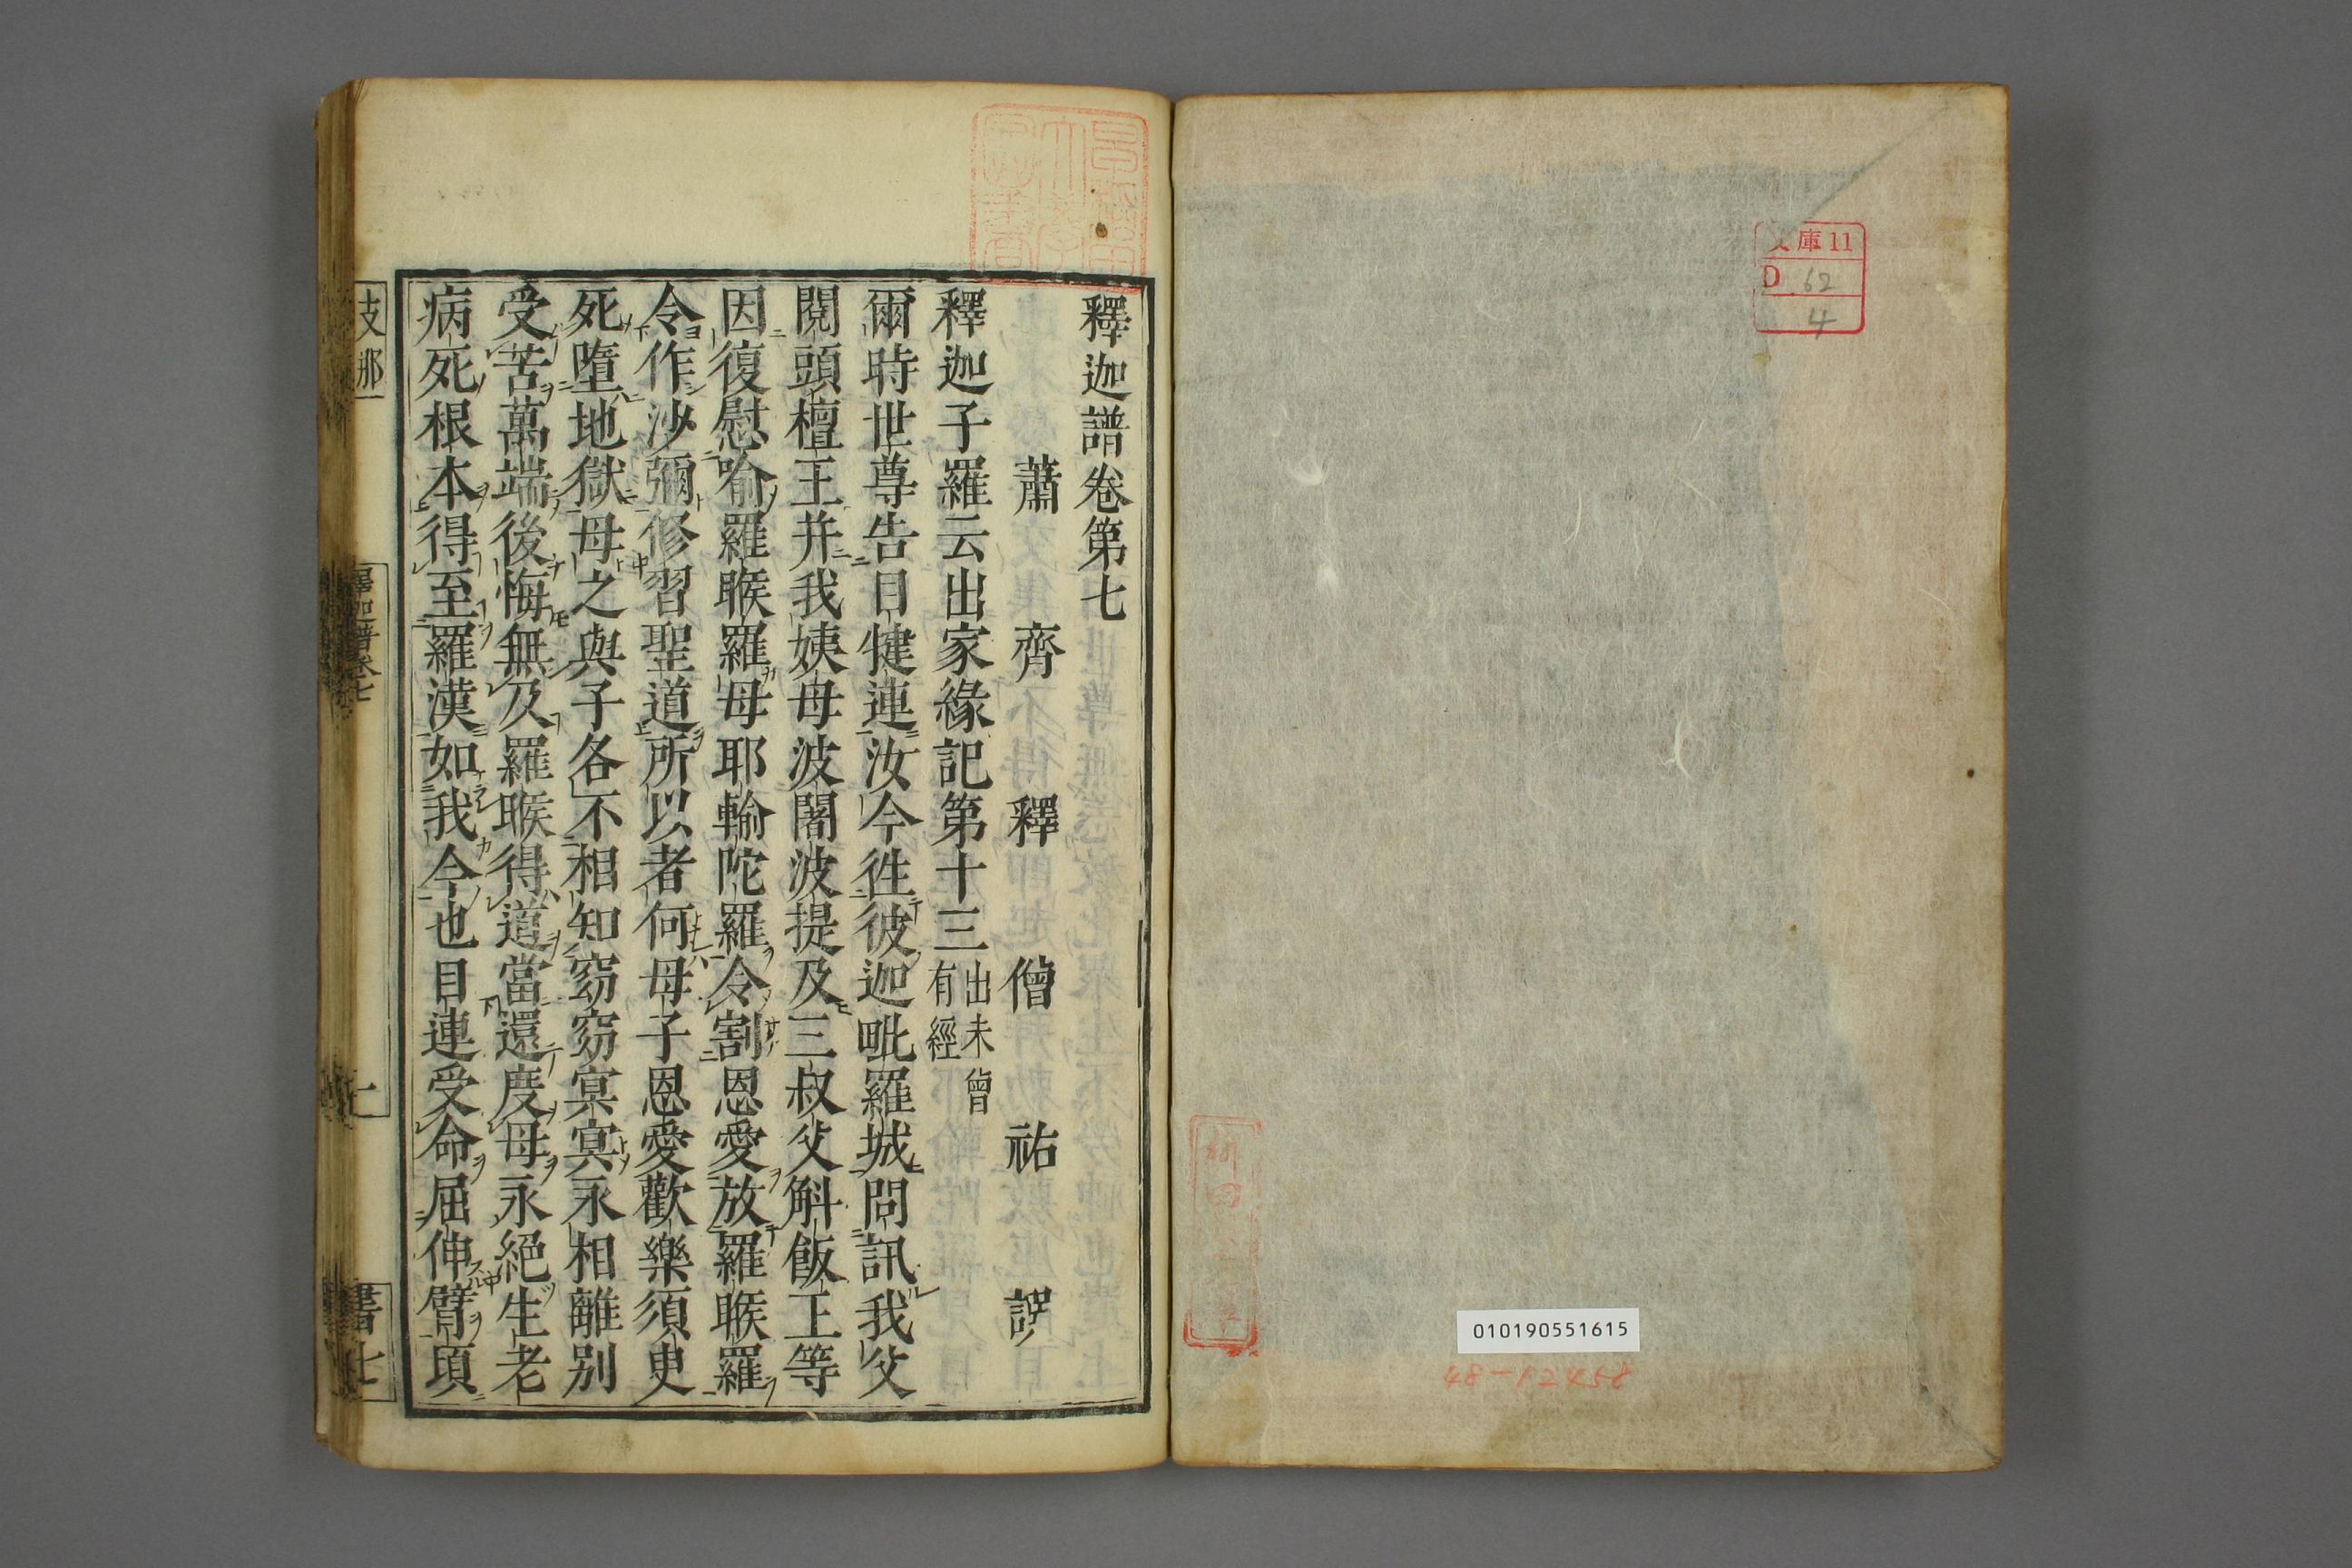 文庫11
D 62
4
010190551615
48-12458
釋迦譜卷第七
蕭齊釋僧祐譔
釋迦子羅云出家緣記第十三出未曾有經
爾時世尊告目犍連汝今徃彼迦毗羅城問訊我父
閱頭檀王并我姨母波闍波提及三叔父斛飯王等
因復慰喻羅睺羅母耶輸陀羅令割恩愛放羅睺羅
令作沙彌修習聖道所以者何母子恩愛歡樂須臾
死墮地獄母之與子各不相知窈窈冥冥永相離別
受苦萬端後悔無及羅睺得道當還度母永絕生老
病死根本得至羅漢如我今也目連受命屈伸臂頃
支那
釋迦譜卷七
一
書七